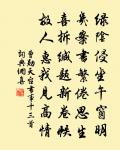 綠陰侵坐午窗明
案牘書繁倦思生
喜拆緘題新卷帙
故人惠我見高情
曾勉天台書事十三首
詞典網集